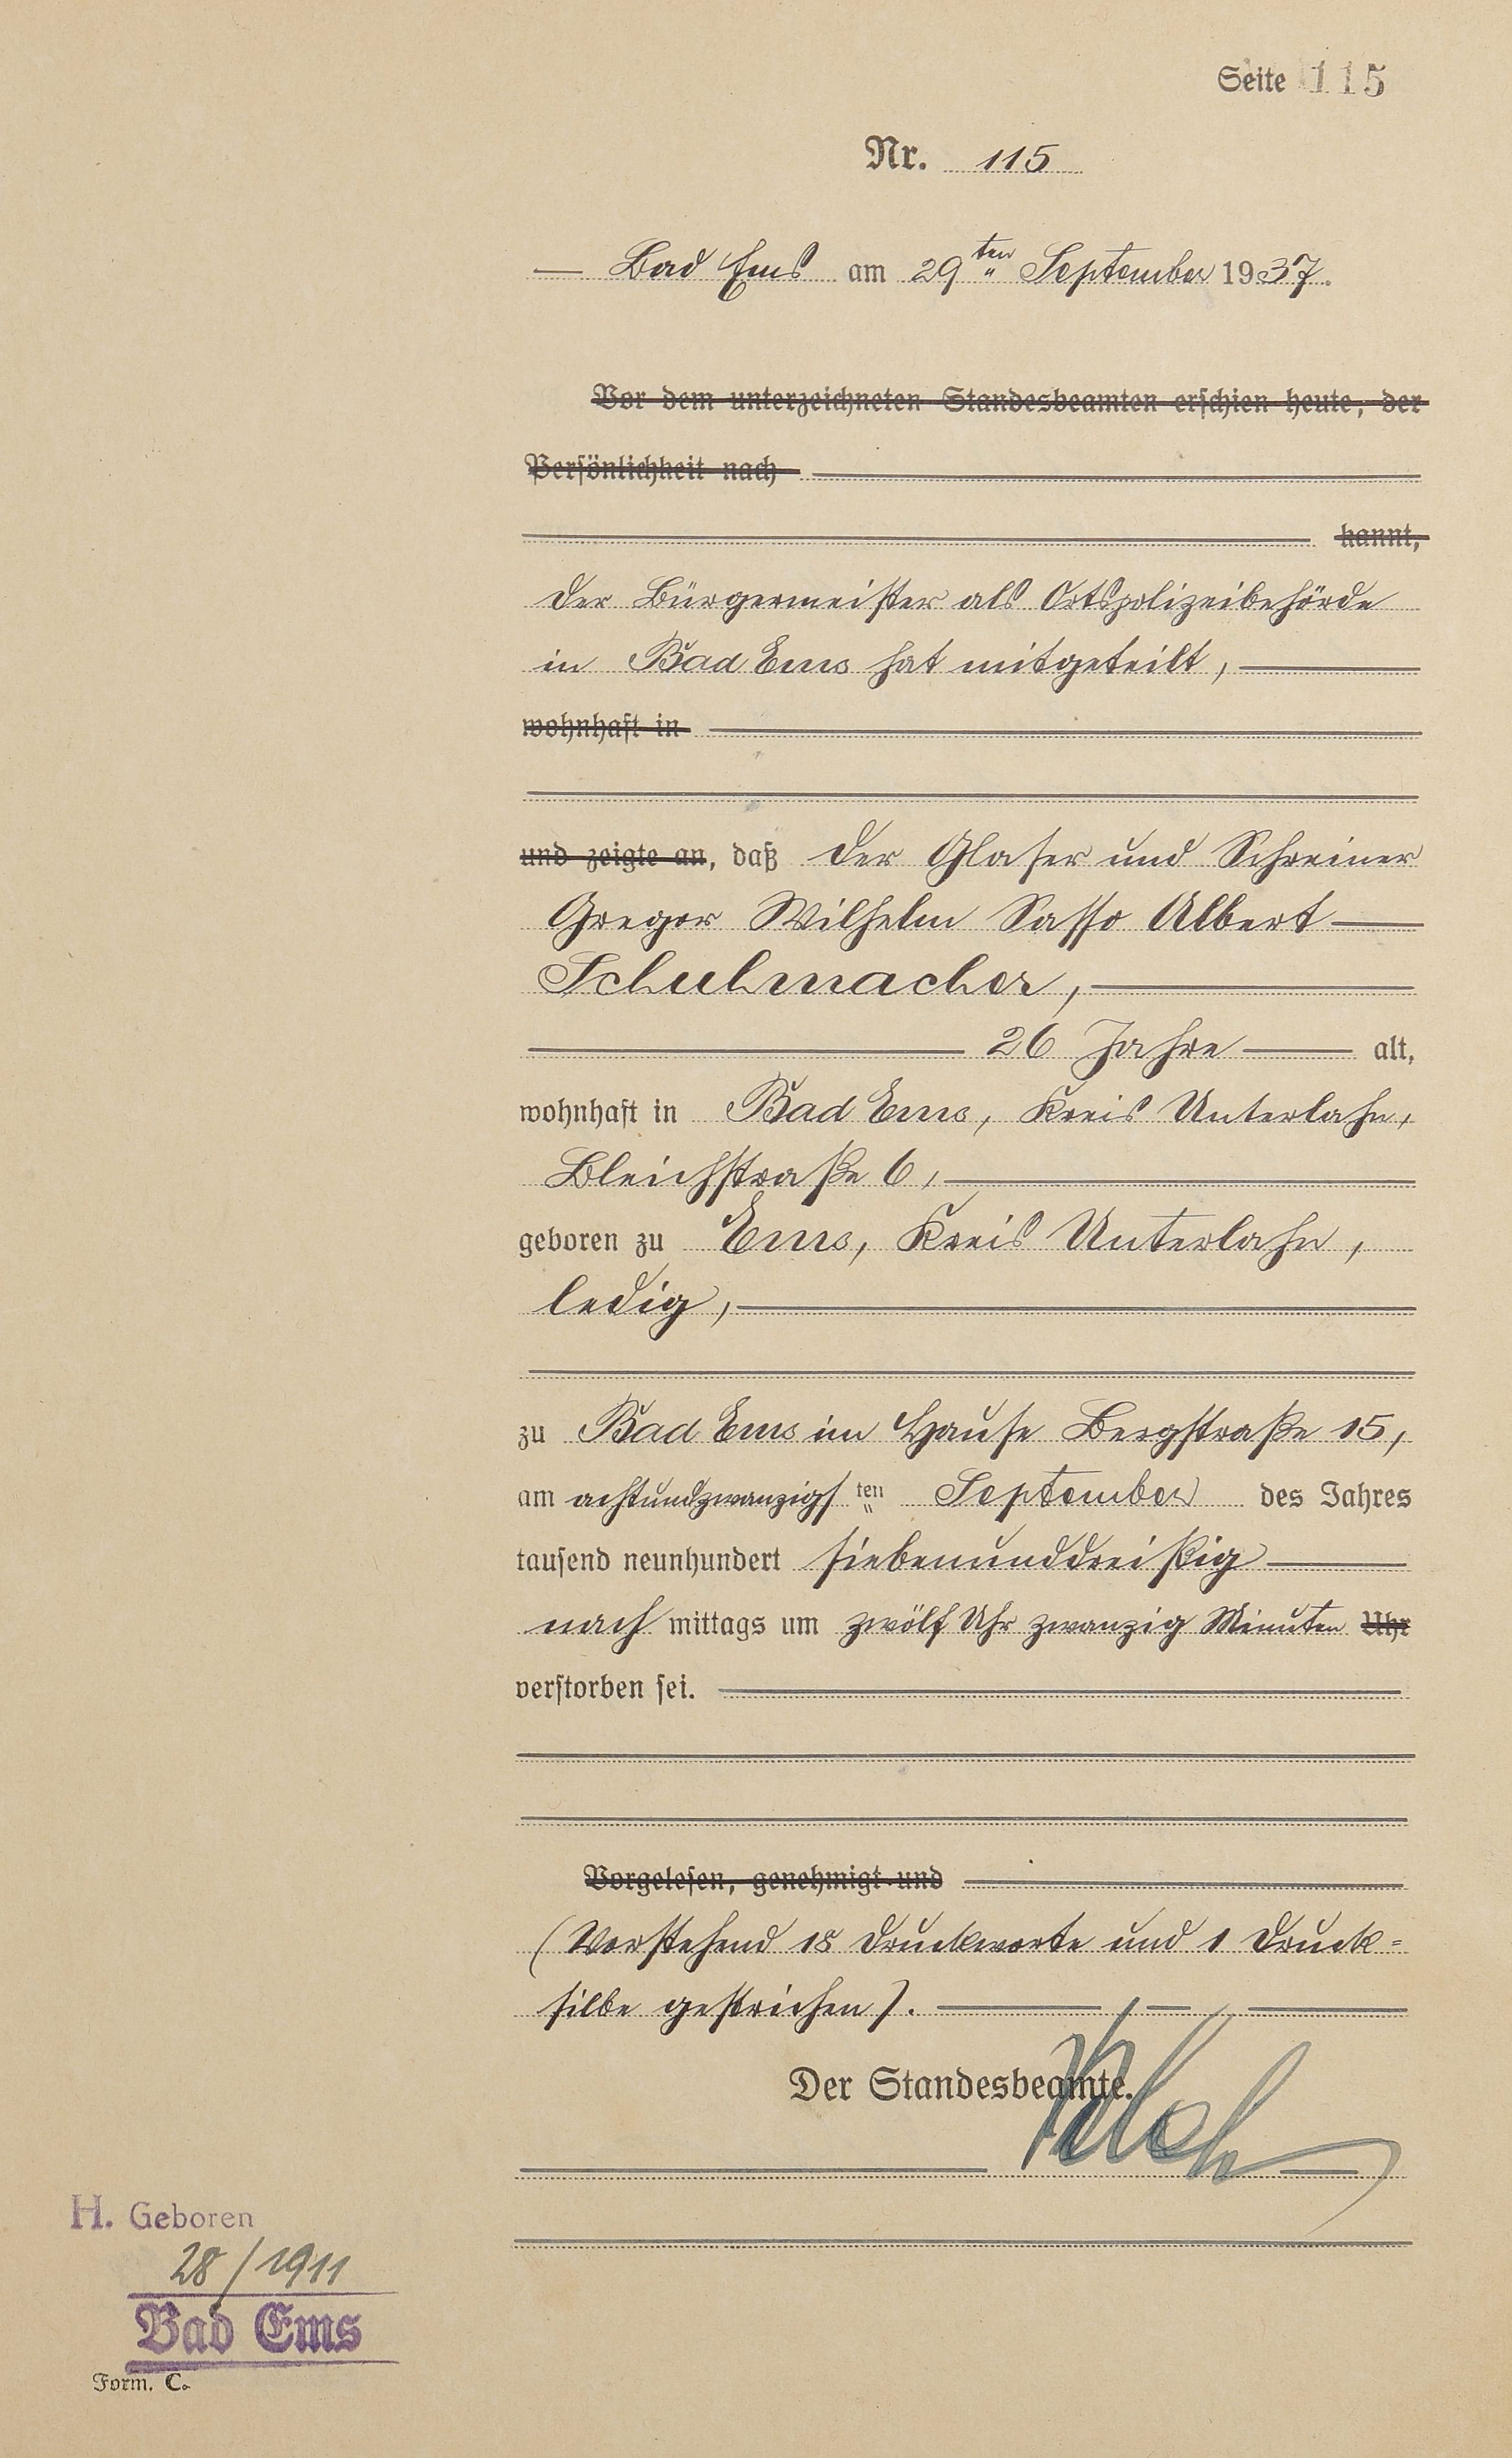 Seite 115
Nr. 115
— Bad Ems am 29ten September 1937.
Vor dem unterzeichneten Standesbeamten erschien heute, der
Persönlichkeit nach
kannt,
der Bürgermeister als Ortspolizeibehörde
in Bad Ems hat mitgeteilt,
wohnhaft in
und zeigte an, daß der Glaser und Schreiner
Gregor Wilhelm Sasso Albert
Schuhmacher,
26 Jahre alt,
wohnhaft in Bad Ems, Kreis Unterlahn,
Bleichstraße 6,
geboren zu Ems, Kreis Unterlahn,
ledig,
zu Bad Ems im Hause Bergstraße 15,
am achtundzwanzigsten September des Jahres
tausend neunhundert siebenunddreißig
nachmittags um zwölf Uhr zwanzig Minuten Uhr
verstorben sei.
Vorgelesen, genehmigt und
(Vorstehend 18 Druckworte und 1 Druck=
silbe gestrichen).
Der Standesbeamte.
H. Geboren
28/1911
Bad Ems
Form. C.